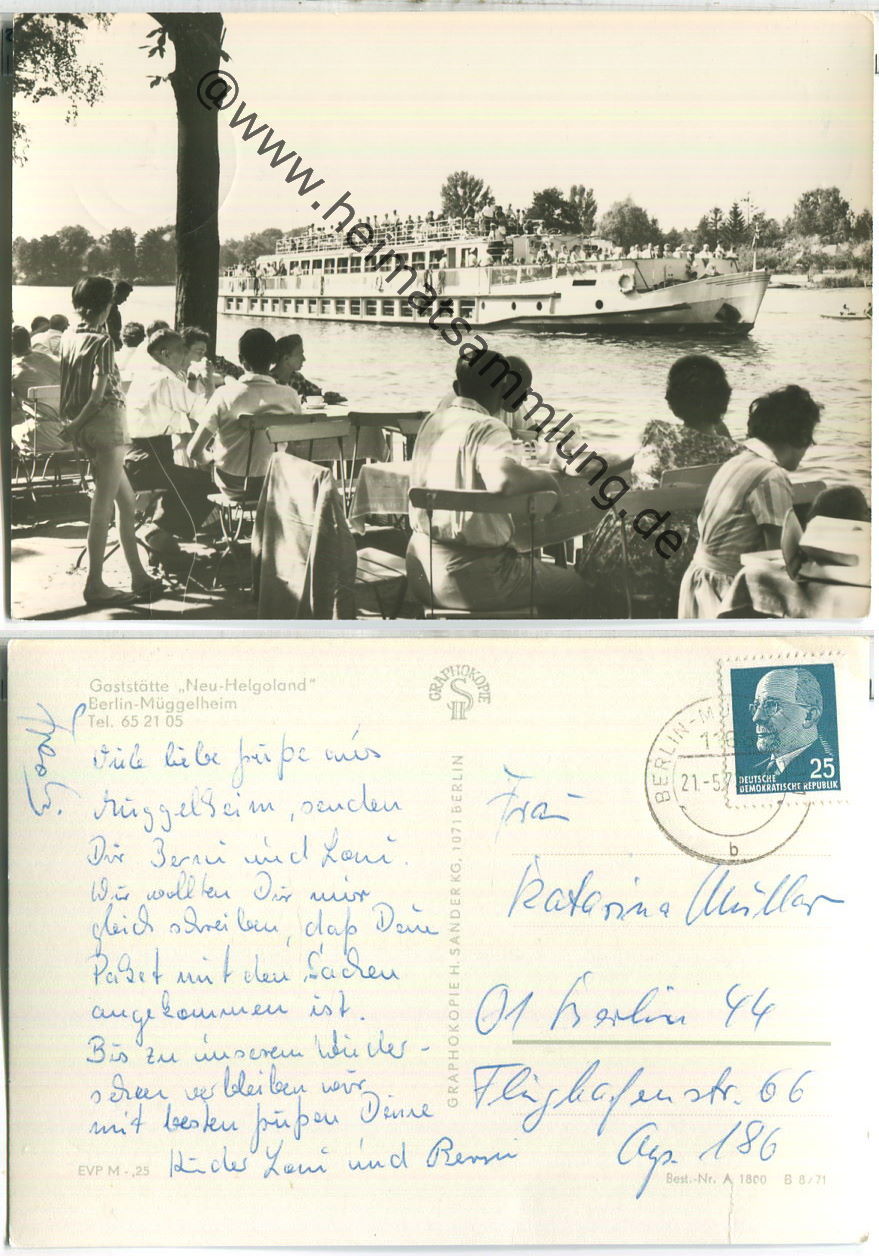 @www.heimatsammlung.de
Gaststätte „Neu-Helgoland"
Berlin-Müggelheim
Tel. 65 21 05
GRAPHOKOPIE
H S
Viele liebe Grüße aus
Müggelheim, senden
Dir Berni und Loni.
Wir wollten Dir nur
gleich schreiben, daß Dein
Paket mit den Sachen
angekommen ist.
Bis zu unserem Wieder-
sehen verbleiben wir
mit besten Grüßen Deine
Kinder Loni und Berni
EVP M -,25
GRAPHOKOPIE H. SANDER KG, 1071 BERLIN
BERLIN-M
21.-5.7
b
25
DEUTSCHE
DEMOKRATISCHE REPUBLIK
Frau
Katarina Müller
01 Berlin 44
Flughafenstr. 66
Best.-Nr. A 1800 B 8/71